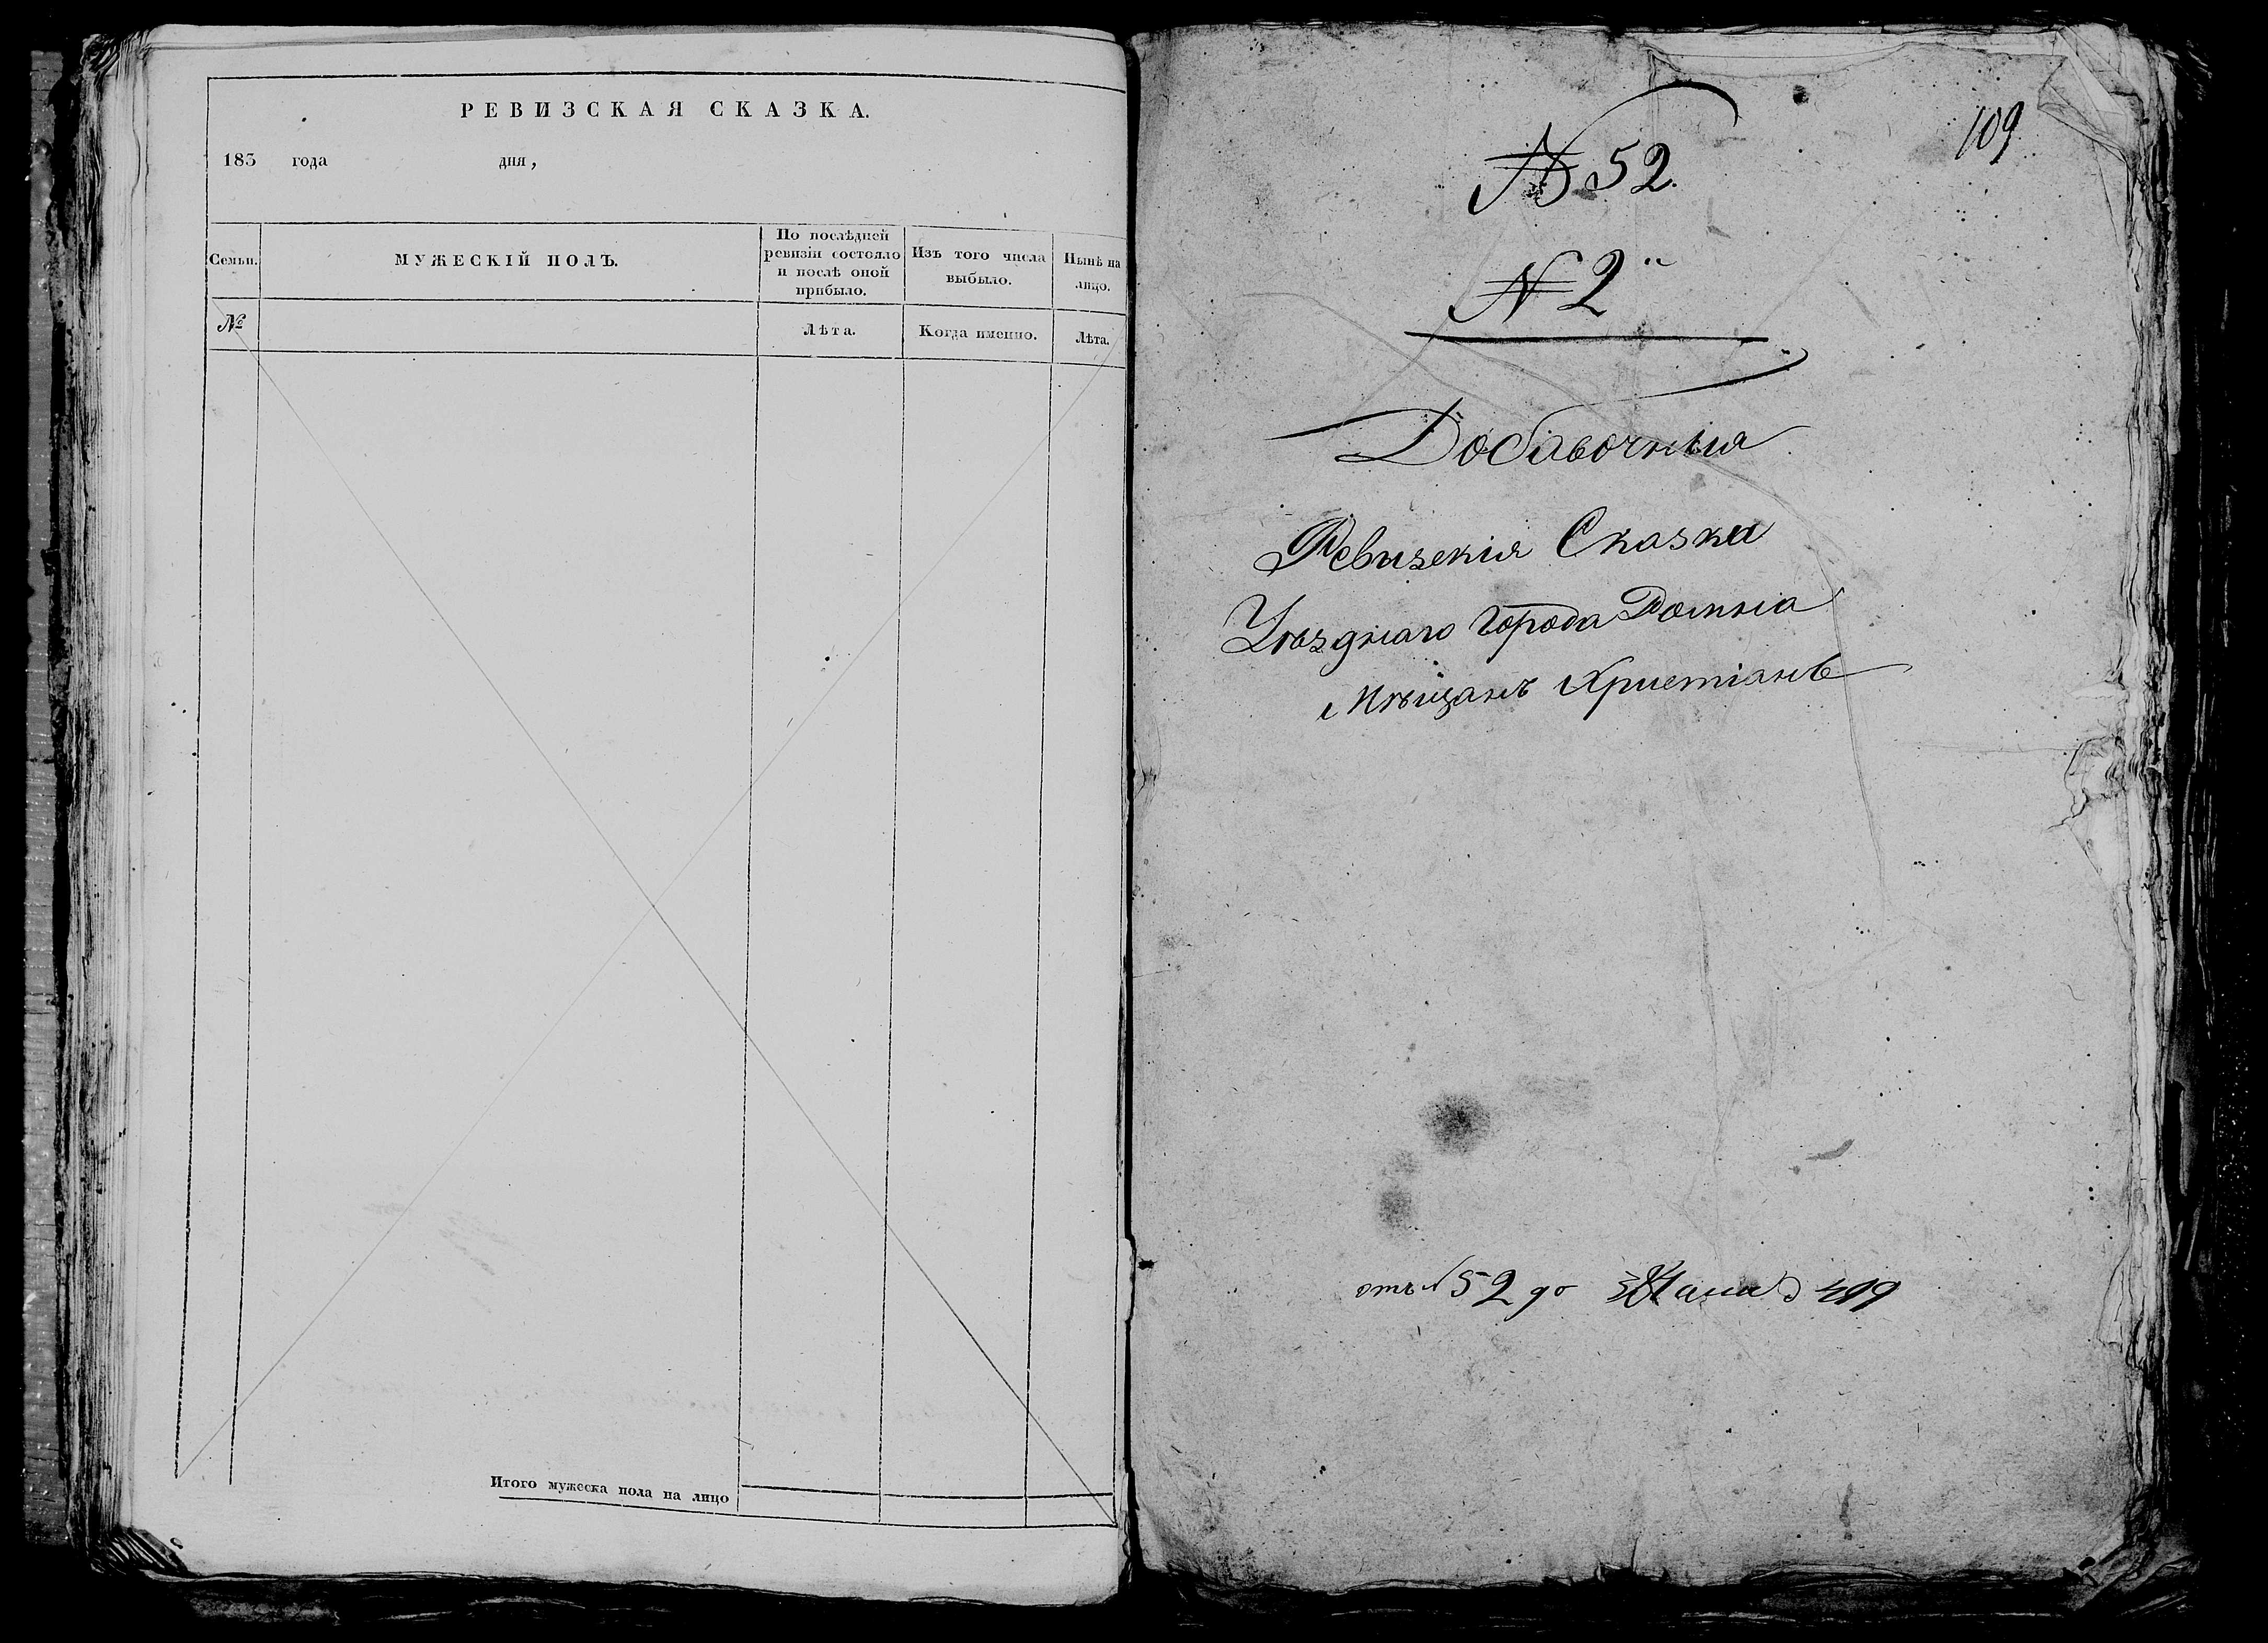 РЕВИЗСКАЯ СКАЗКА.
183 года дня,
Семьи.
МУЖЕСКІЙ ПОЛЪ.
По послѣдней
ревизіи состояло
и послѣ оной
прибыло.
Изъ того числа
выбыло.
Нынѣ на
лицо.
№
Лѣта.
Когда именно.
Лѣта.
Итого мужеска пола на лицо
109
№ 52.
№ 2
Добавочныя
Ревизскія Сказки
Уѣзднаго Города
Мѣщанъ Христіанъ
отъ № 52 до